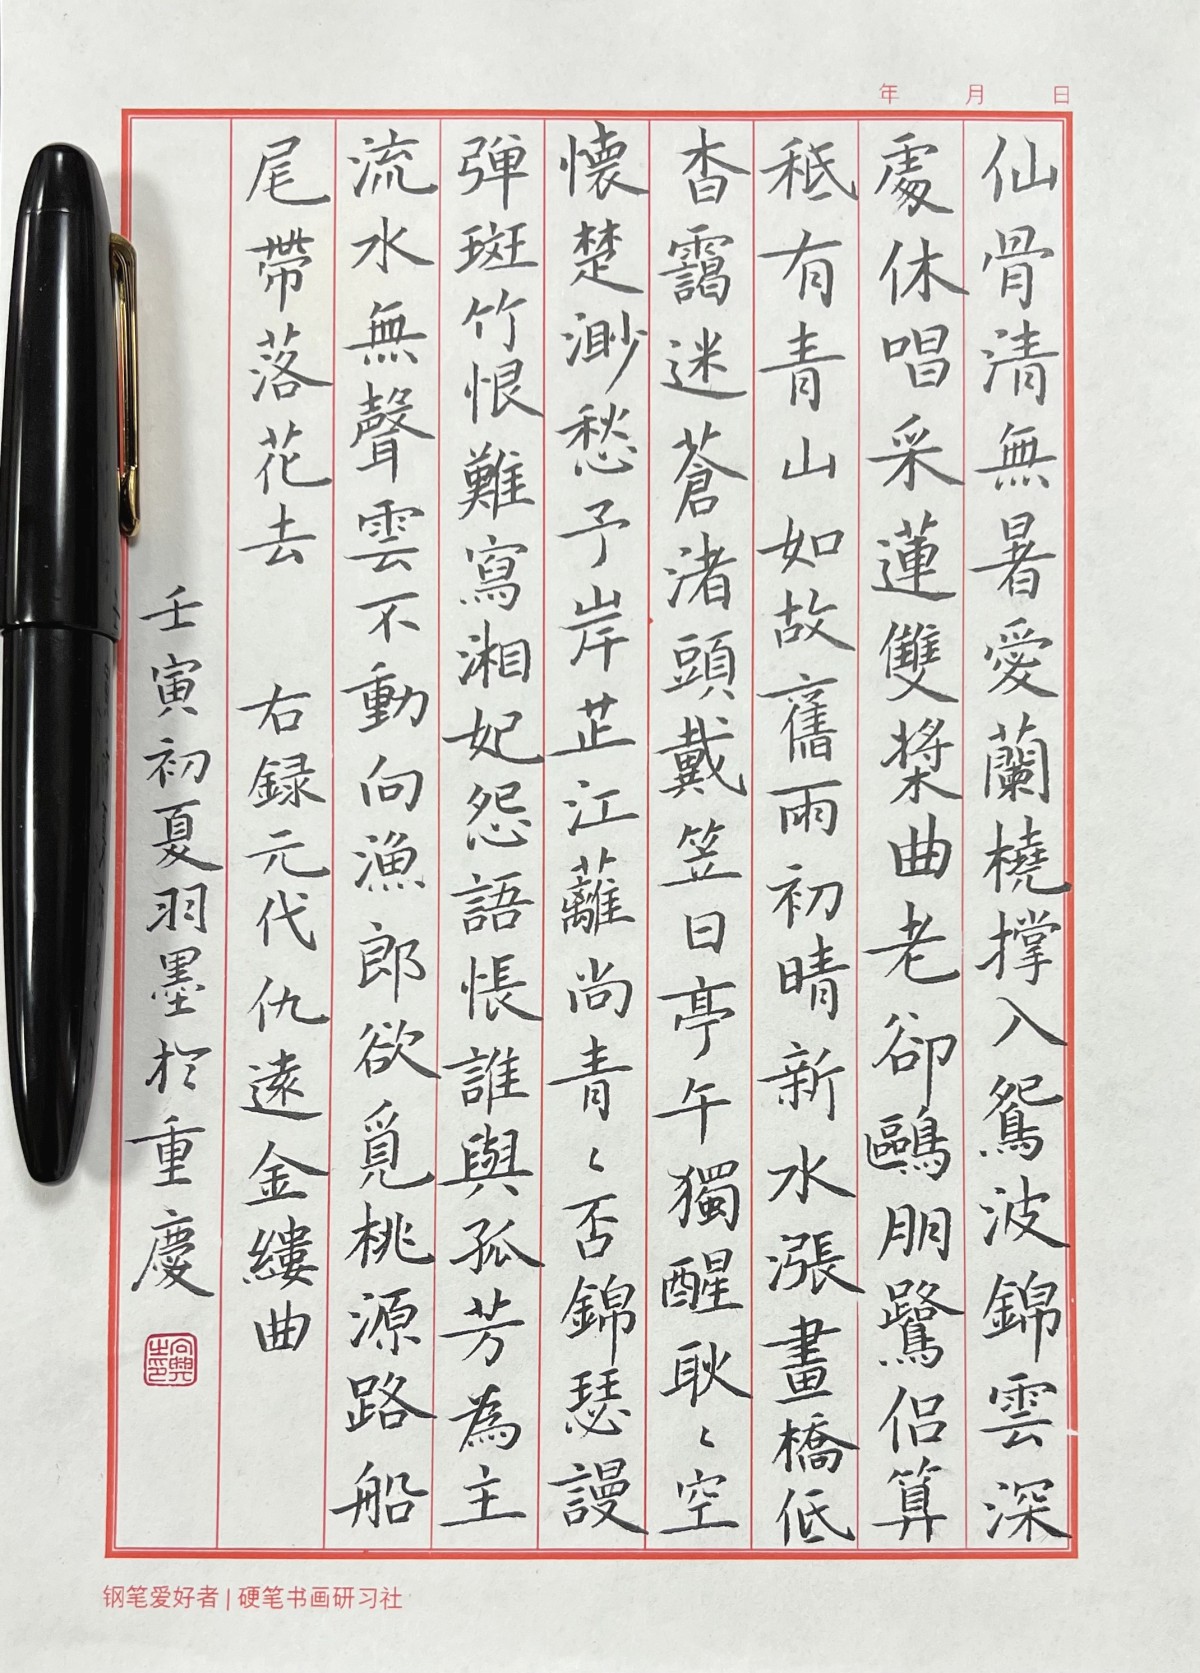 年 月 日
仙骨清無暑愛蘭橈撑入鴛波錦雲深
處休唱采蓮雙槳曲老卻鷗朋鷺侣算
秪有青山如故舊雨初晴新水漲畫橋低
杳靄迷蒼渚頭戴笠日亭午獨醒耿〻空
懷楚渺愁予岸芷江蘺尚青〻否錦瑟謾
彈斑竹恨難寫湘妃怨語悵誰與孤芳為主
流水無聲雲不動向漁郎欲覓桃源路船
尾帶落花去 右録元代仇遠金縷曲
壬寅初夏羽墨於重慶
钢笔爱好者 | 硬笔书画研习社